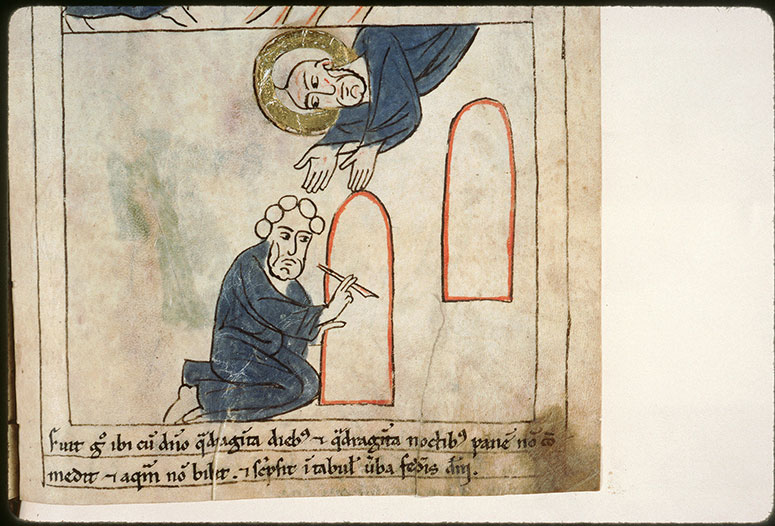 fuit gͦ ibi cū dn̄o q̄dragīta dieb⁹ ⁊ q̄dragīta noctib⁹ panē nō cō
medit ⁊ aq̄m nō bibit. ⁊ sc̄psit ī tabul' v̄ba fed̄is dn̄i.